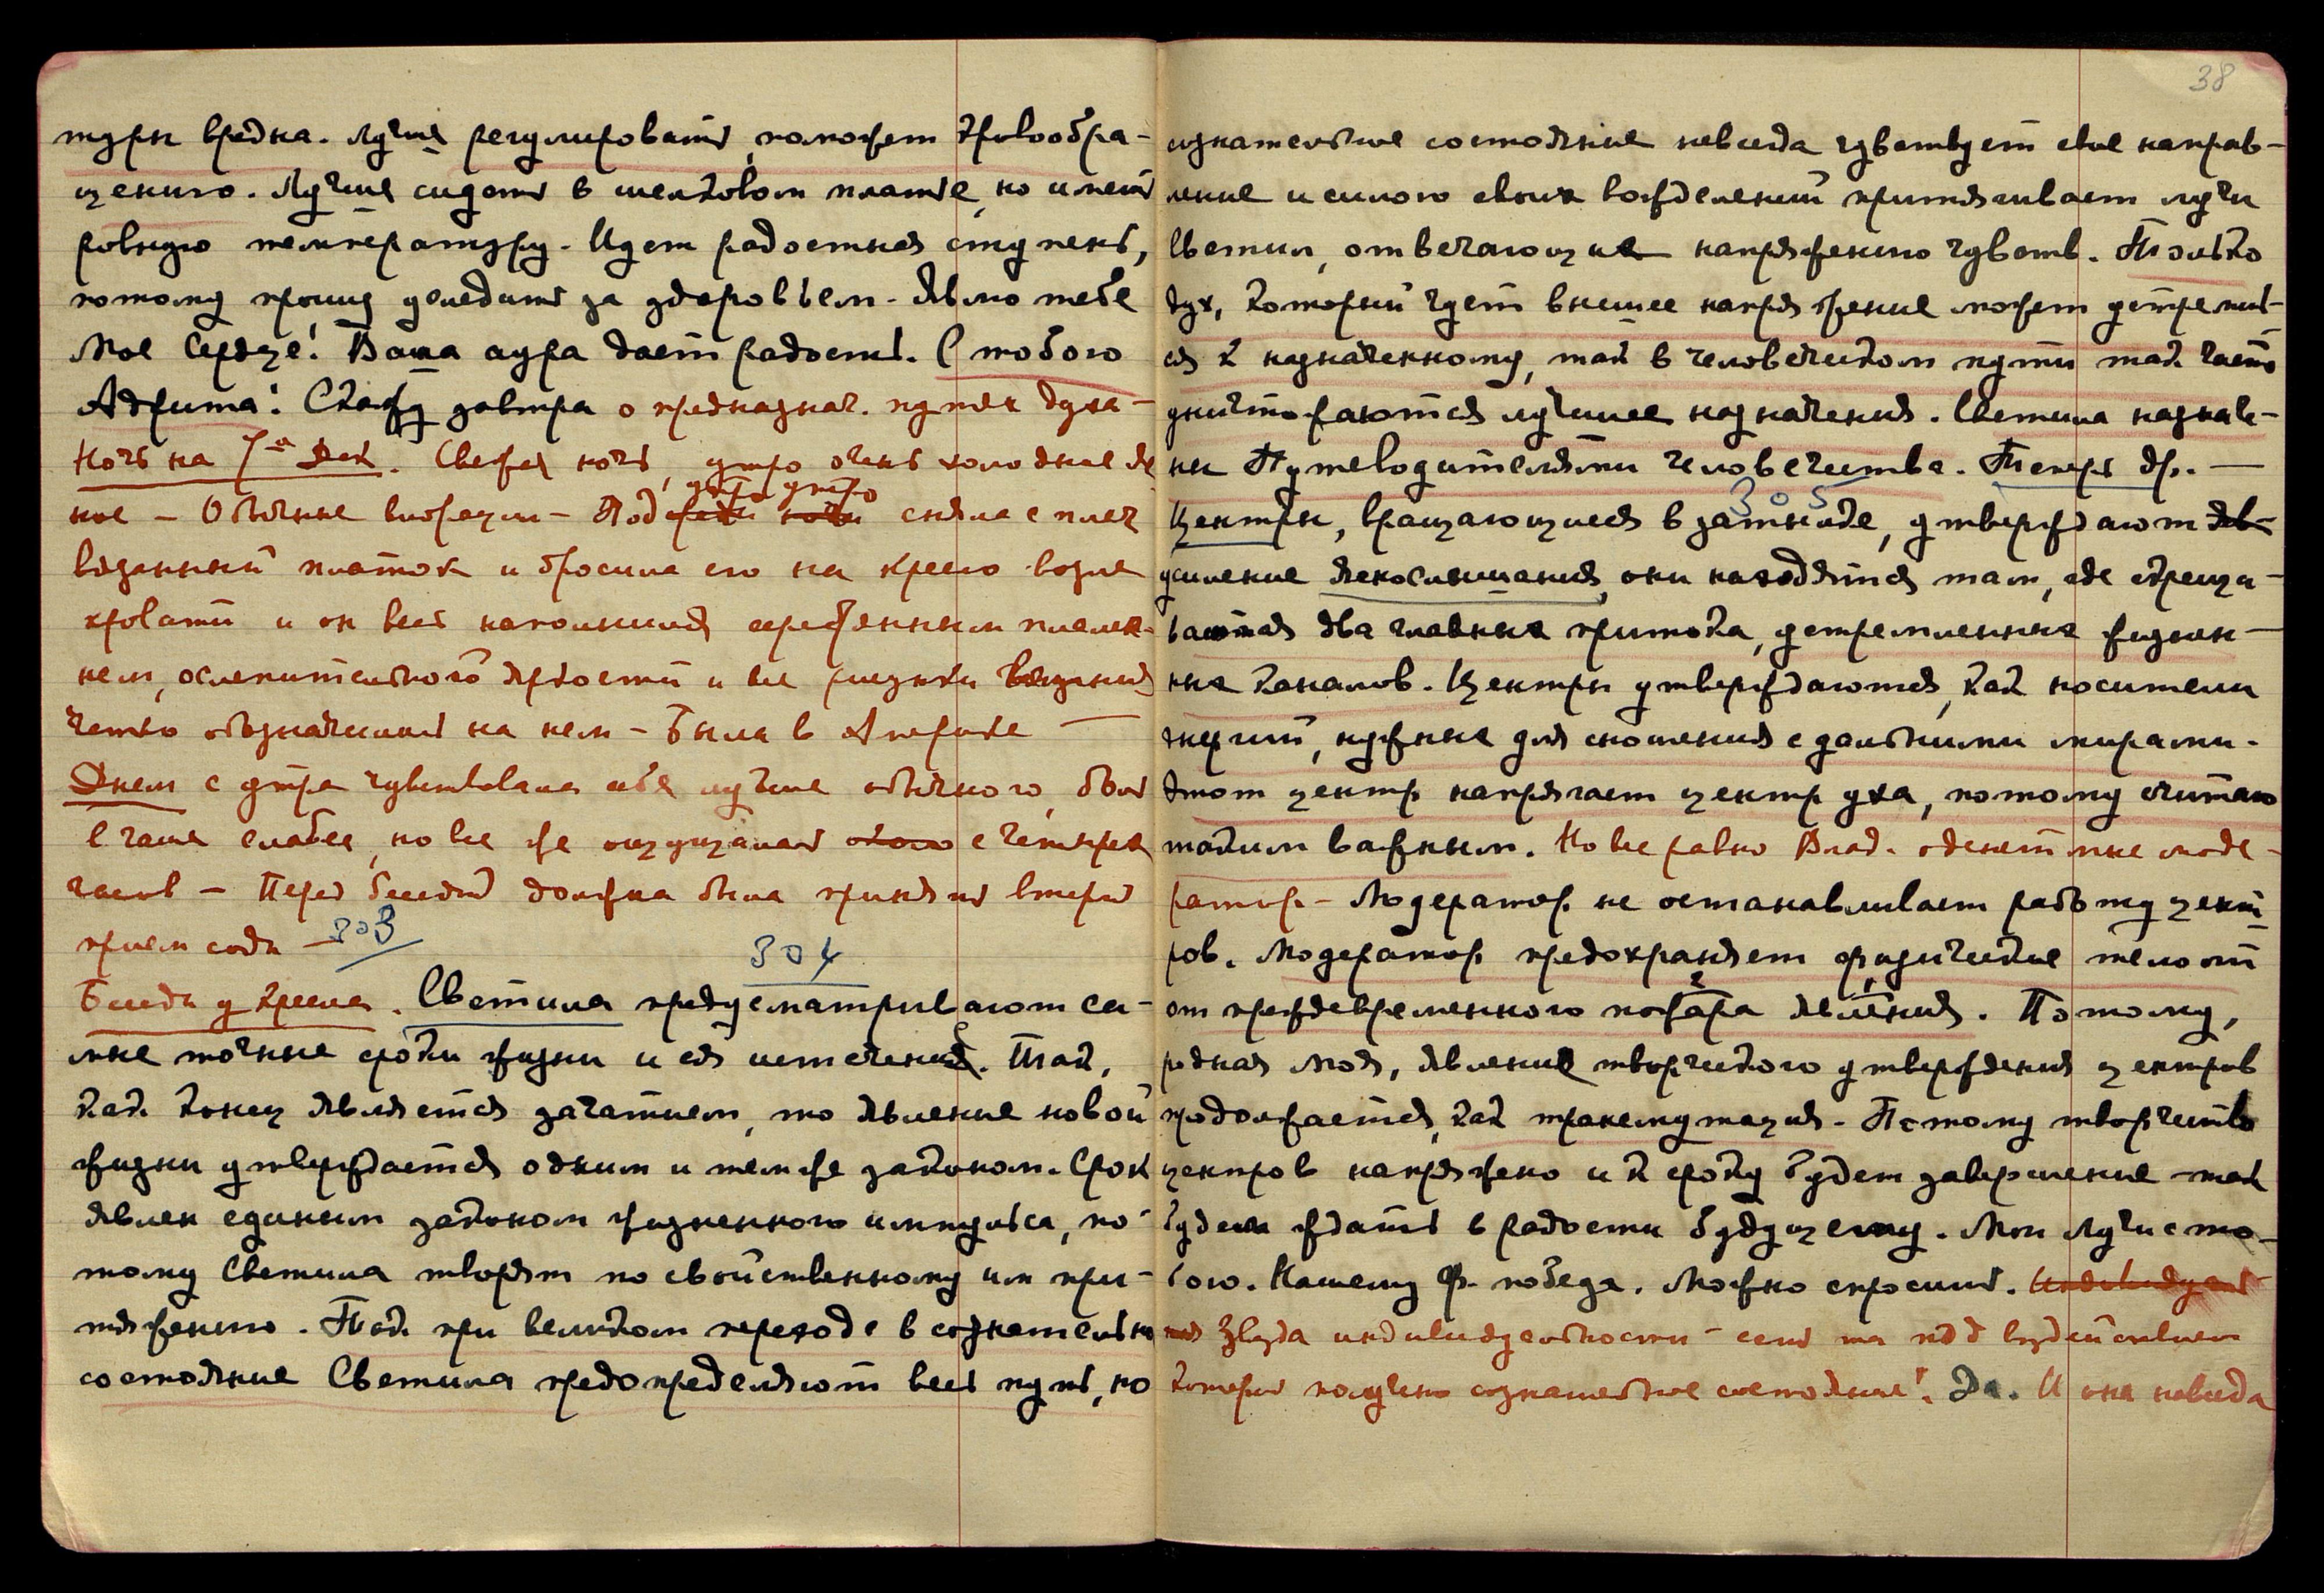 туры вредна. Лучше регулировать, поможет кровообра-
щению. Лучше сидеть в шелковом платье, но иметь
ровную температуру. Идет радостная ступень,
потому прошу уследить за здоровьем. Явлю тебе
Мое Сердце! Ваша аура дает радость. С тобою
Адхита! Скажу завтра о предназнач. путях духа –
Ночь на 7ª Дек. Свежая ночь, утро очень холодное
ное – Обычные вибрации – Под утро утро сняла с плеч
вязанный платок и бросила его на кресло возле
кровати и он весь наполнился серебряным пламе-
нем, ослепительной яркости и все рисунки вязания
четко обозначились на нем – Была в
Днем с утра чувствовала себя лучше обычного, боль
в чаше слабее, но все же ощущалась около с четырех
часов – Перед беседой должна была принять вторый
прием соды – 303
304
Беседа у кресла. Светила предусматривают са-
мые точные сроки жизни и ея истечения. Так,
как конец является зачатием, то явление новой
жизни утверждается одним и тем же законом. Срок
явлен единым законом жизненного импульса, по-
тому Светила творят по свойственному им при-
тяжению. Так при великом переходе в сознательно
состояние Светила предопределяют весь путь, но
38
сознательное состояние всегда чувствует свое направ-
ление и силою своих вожделений притягивает лучи
Светил, отвечающие напряжению чувств. Только
дух, который чует высшее напряжение может устремит-
ся к назначенному, так в человеческом пути так часто
уничтожаются лучшее назначения. Светила назва-
ны Путеводителями человечества. Теперь др. —
305
Центры, вращающиеся в затылке, утверждают яв-
усиление яснослышания, они находятся там, где скрещи-
ваются два главных притока, устремленных жизнен-
ных каналов. Центры утверждаются, как носители
энергий, нужных для сношения с дальними мирами.
Этот центр напрягает центр уха, потому считаю
таким важным. Но все равно Влад. оденет мне моде-
ратор – Модератор не останавливает работу цент-
ров. Модератор предохраняет физическое тело от
от преждевременного пожара явления. Потому,
родная Моя, явление творческого утверждения центров
продолжается, как трансмутация. Потому творчество
центров напряжено и к сроку будет завершение так
будем ждать в радости будущему. Мои Лучи с то-
бою. Нашему Ф. победа. Можно спросить. Индивидуаль
звезда индивидуальности – есть та под воздействием
которой получено сознательное состояние? Да. И она всегда